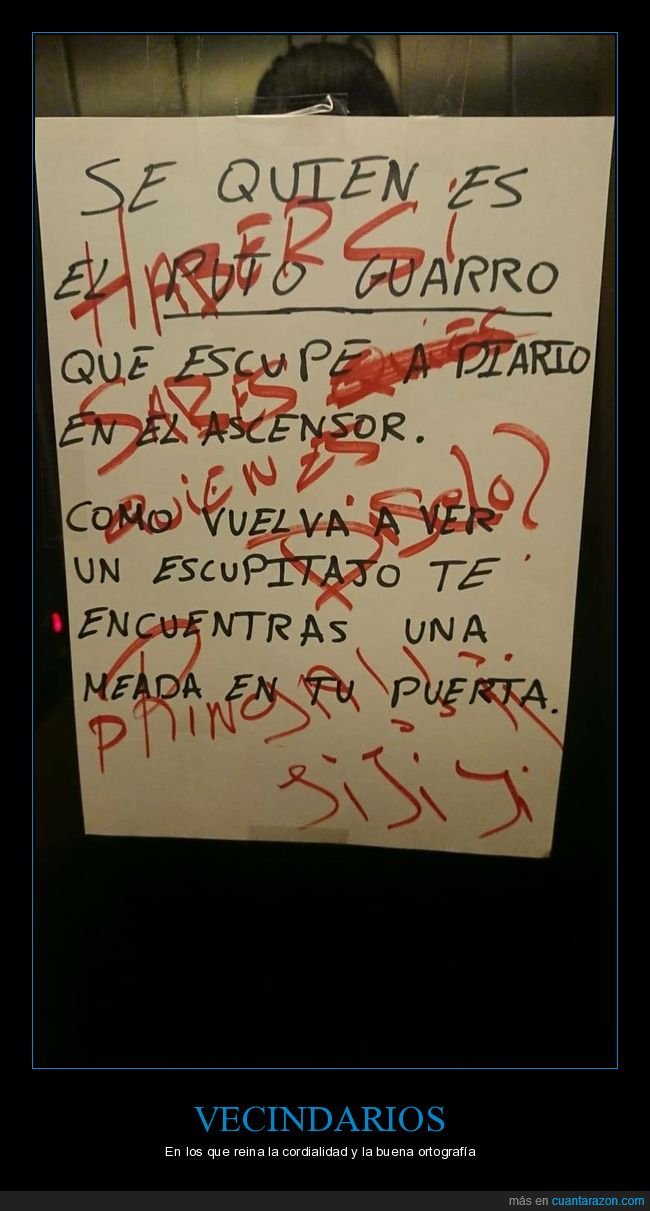 SE QUIEN ES
EL PUTO GUARRO
QUE ESCUPE A DIARIO
EN EL ASCENSOR.
COMO VUELVA A VER
UN ESCUPITAJO TE
ENCUENTRAS UNA
MEADA EN TU PUERTA.
HABER SI
SABES
QUIEN ES
JiJi Ji
VECINDARIOS
En los que reina la cordialidad y la buena ortografía
más en cuantarazon.com